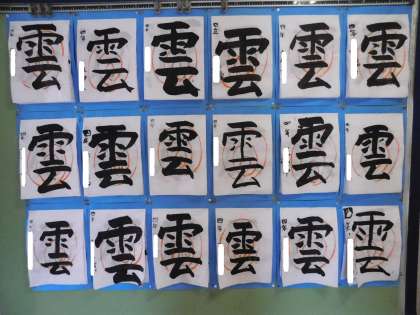 雲 雲 雲 雲 雲 雲
雲 雲 雲 雲 雲 雲
雲 雲 雲 雲 雲 雲